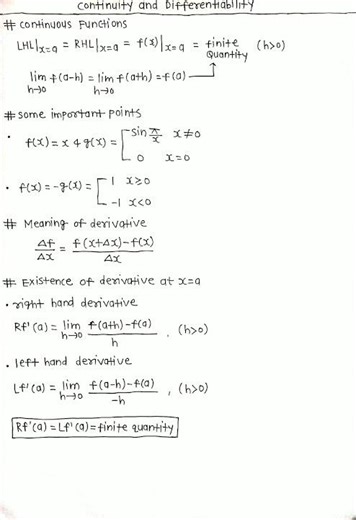 Continuity and Differentiability
# Continuous Functions
LHL|x=a = RHL|x=a = f(x)|x=a = finite quantity (h>0)
lim h→0 f(a-h) = lim h→0 f(a+h) = f(a)
# Some important points
• f(x) = x & g(x) = [ sin π/x x≠0
0 x=0
• f(x) = -g(x) = [ 1 x≥0
-1 x<0
# Meaning of derivative
Δf/Δx = f(x+Δx)-f(x)/Δx
# Existence of derivative at x=a
• right hand derivative
Rf'(a) = lim h→0 f(a+h)-f(a)/h , (h>0)
• left hand derivative
Lf'(a) = lim h→0 f(a-h)-f(a)/-h , (h>0)
Rf'(a) = Lf'(a) = finite quantity